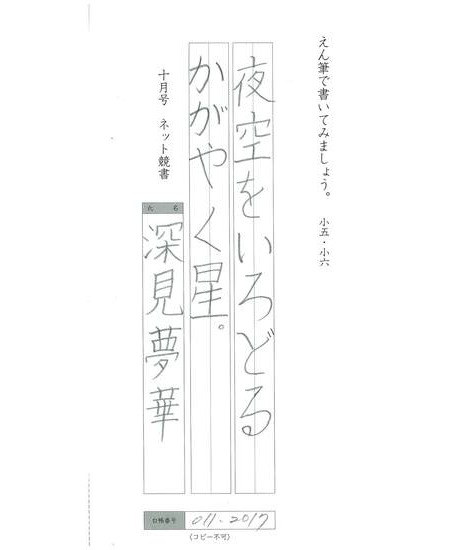 えん筆で書いてみましょう。 小五・小六
夜空をいろどる
かがやく星。
十月号 ネット競書
氏 名
深見夢華
台帳番号 011-2017
(コピー不可)